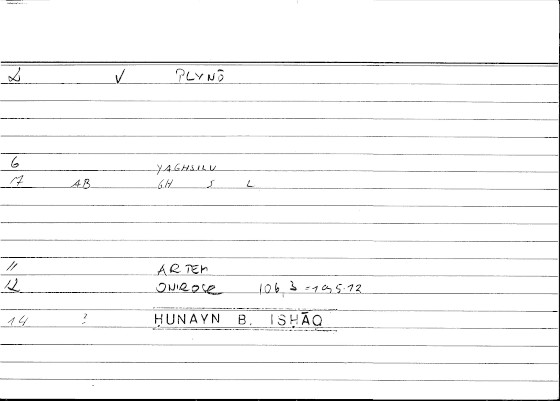 2 V PLYNŌ
6 YAGHSILU
7 AB GH S L
11 ARTEM
12 ONIROCR 106, 3 = 19,5-12
14 ? ḤUNAYN B. ISḤĀQ